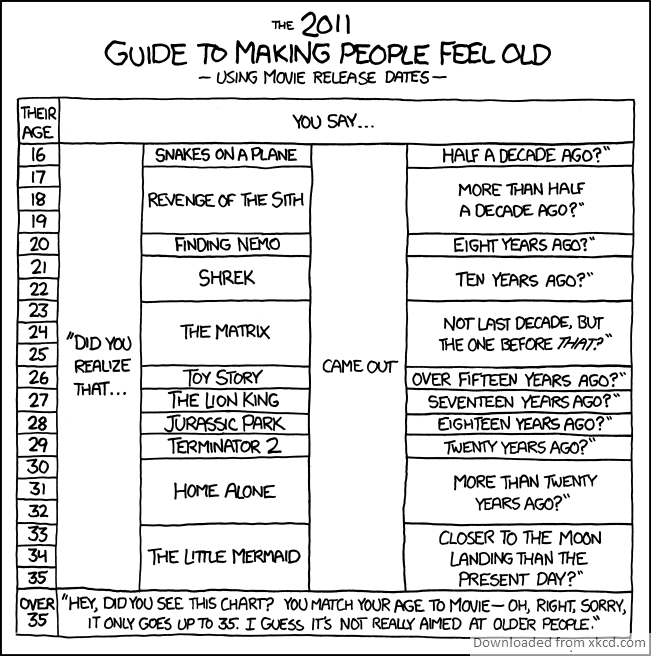 THE 2011
GUIDE TO MAKING PEOPLE FEEL OLD
— USING MOVIE RELEASE DATES —
THEIR
AGE
YOU SAY...
16
SNAKES ON A PLANE
HALF A DECADE AGO?"
17
18
19
REVENGE OF THE SITH
MORE THAN HALF
A DECADE AGO?"
20
FINDING NEMO
EIGHT YEARS AGO?"
21
22
SHREK
TEN YEARS AGO?"
23
24
25
"DID YOU
REALIZE
THAT...
THE MATRIX
CAME OUT
NOT LAST DECADE, BUT
THE ONE BEFORE THAT?"
26
TOY STORY
OVER FIFTEEN YEARS AGO?"
27
THE LION KING
SEVENTEEN YEARS AGO?"
28
JURASSIC PARK
EIGHTEEN YEARS AGO?"
29
TERMINATOR 2
TWENTY YEARS AGO?"
30
31
32
HOME ALONE
MORE THAN TWENTY
YEARS AGO?"
33
34
35
THE LITTLE MERMAID
CLOSER TO THE MOON
LANDING THAN THE
PRESENT DAY?"
OVER
35
"HEY, DID YOU SEE THIS CHART? YOU MATCH YOUR AGE TO MOVIE— OH, RIGHT, SORRY,
IT ONLY GOES UP TO 35. I GUESS IT'S NOT REALLY AIMED AT OLDER PEOPLE."
Downloaded from xkcd.com